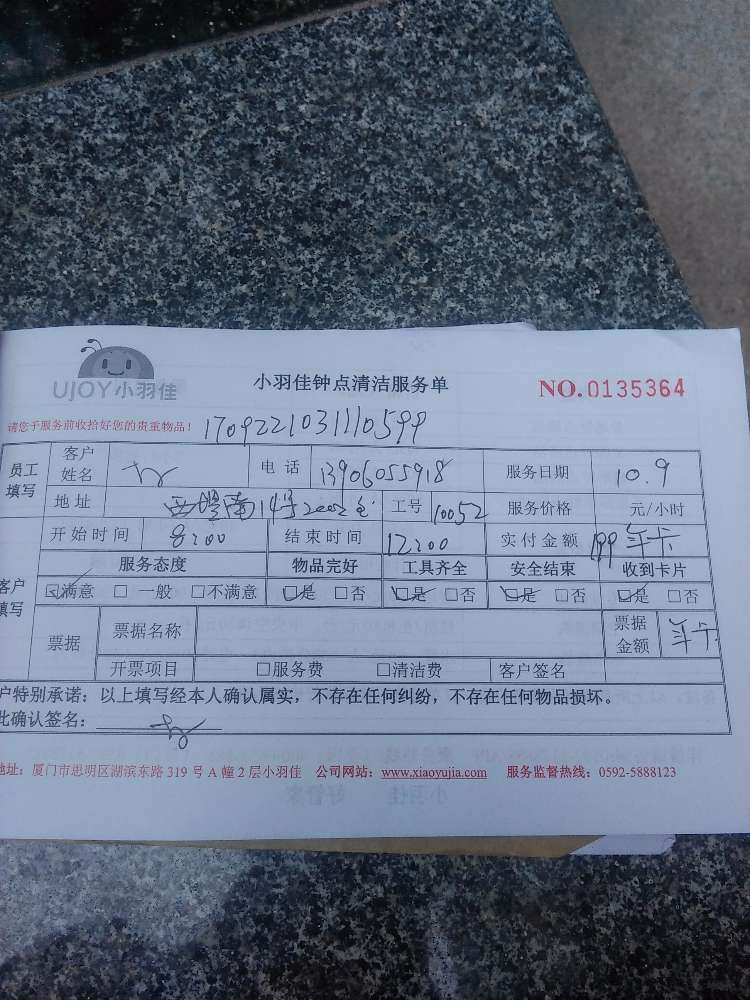 UJOY小羽佳
小羽佳钟点清洁服务单 NO.0135364
请您于服务前收拾好您的贵重物品! 1709221031110599
员工填写 客户姓名 电话 13906055918 服务日期 10.9
地址 西堤南14号2002室 工号 10052 服务价格 元/小时
开始时间 8:00 结束时间 12:00 实付金额 199 年卡
服务态度 物品完好 工具齐全 安全结束 收到卡片
客户填写 ☑满意 □一般 □不满意 ☑是 □否 ☑是 □否 ☑是 □否 ☑是 □否
票据 票据名称 票据金额 年卡
开票项目 □服务费 □清洁费 客户签名
户特别承诺：以上填写经本人确认属实，不存在任何纠纷，不存在任何物品损坏。
此确认签名：
地址：厦门市思明区湖滨东路 319 号 A 幢 2 层小羽佳 公司网站：www.xiaoyujia.com 服务监督热线：0592-5888123